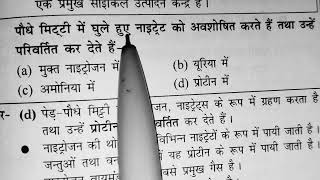 एक प्रमुख साइकिल उत्पादन केन्द्र है।
पौधे मिट्टी में घुले हुए नाइट्रेट को अवशोषित करते हैं तथा उन्हें
परिवर्तित कर देते हैं
(a) मुक्त नाइट्रोजन में (b) यूरिया में
(c) अमोनिया में (d) प्रोटीन में
र- (d) पेड़-पौधे मिट्टी नाइट्रोजन, नाइट्रेट्स के रूप में ग्रहण करता है
तथा उन्हें प्रोटीन वर्तित कर देते हैं।
नाइट्रोजन की थो विभिन्न नाइट्रेटों के रूप में पायी जाती है।
जन्तुओं तथा वन यह प्रोटीन के रूप में पायी जाती है।
प्रमुख गैस है।